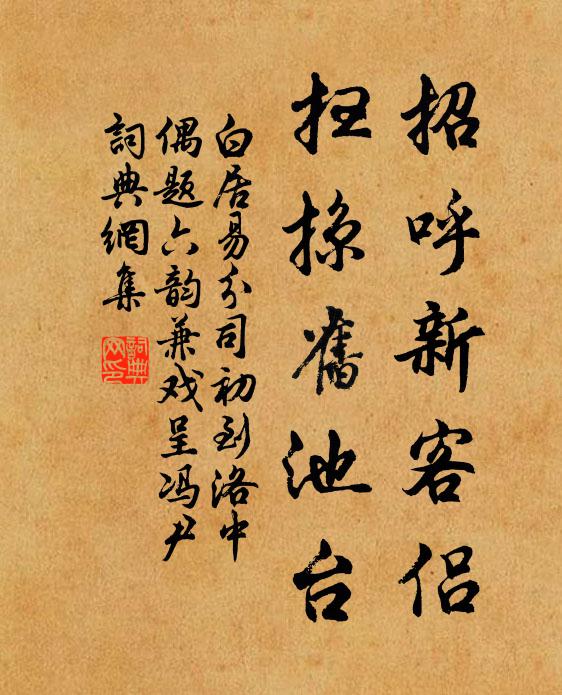 招呼新客侣
扫掠舊池台
白居易分司初到洛中
偶题六韵兼戏呈冯尹
詞典網集
詞典網印